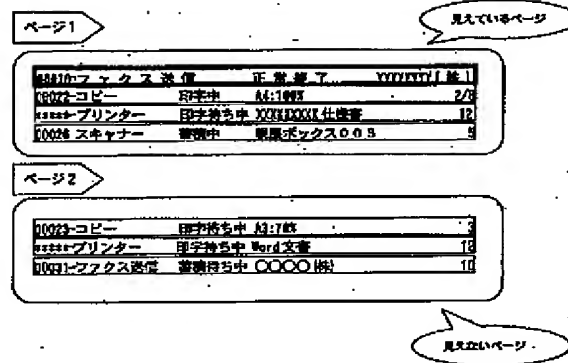 ページ1
見えているページ
ファクス送信 正常終了
00022-コピー 印字中 A4:100% 2/8
*****-プリンター 印字待ち中 XXXXXXXX仕様書 12
00026 スキャナー 蓄積中 親展ボックス003 5
ページ2
00023-コピー 印字待ち中 A3:70% 3
*****-プリンター 印字待ち中 Word文書 18
00031-ファクス送信 蓄積待ち中 〇〇〇〇(株) 10
見えないページ